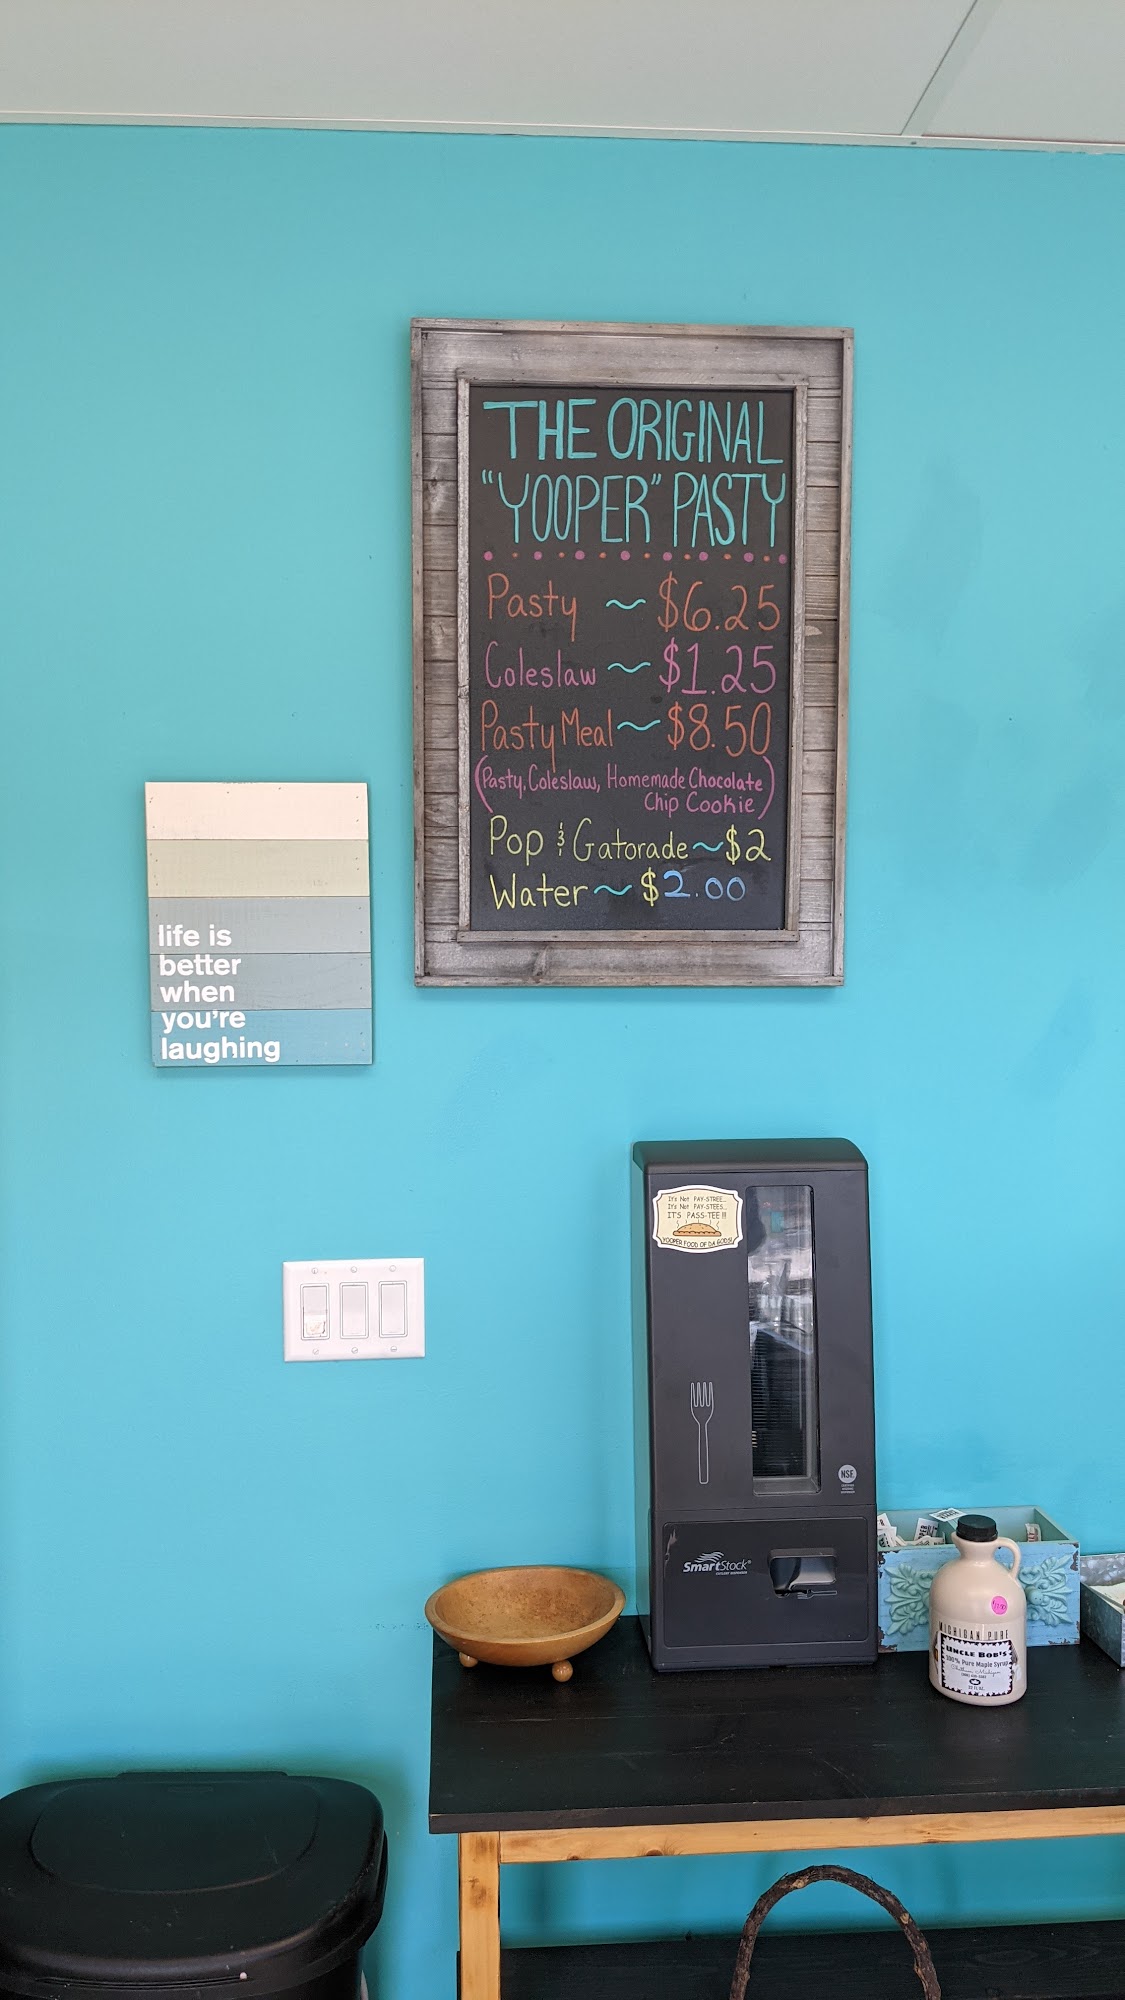 THE ORIGINAL
"YOOPER" PASTY
Pasty ~ $6.25
Coleslaw ~ $1.25
Pasty Meal ~ $8.50
(Pasty, Coleslaw, Homemade Chocolate
Chip Cookie)
Pop & Gatorade ~ $2
Water ~ $2.00
life is
better
when
you're
laughing
It's Not PAY-STREE...
It's Not PAY-STEES...
IT'S PASS-TEE !!!
YOOPER FOOD OF DA GODS!
NSF
SmartStock®
MICHIGAN PURE
UNCLE BOB'S
100% Pure Maple Syrup
32 FL OZ.